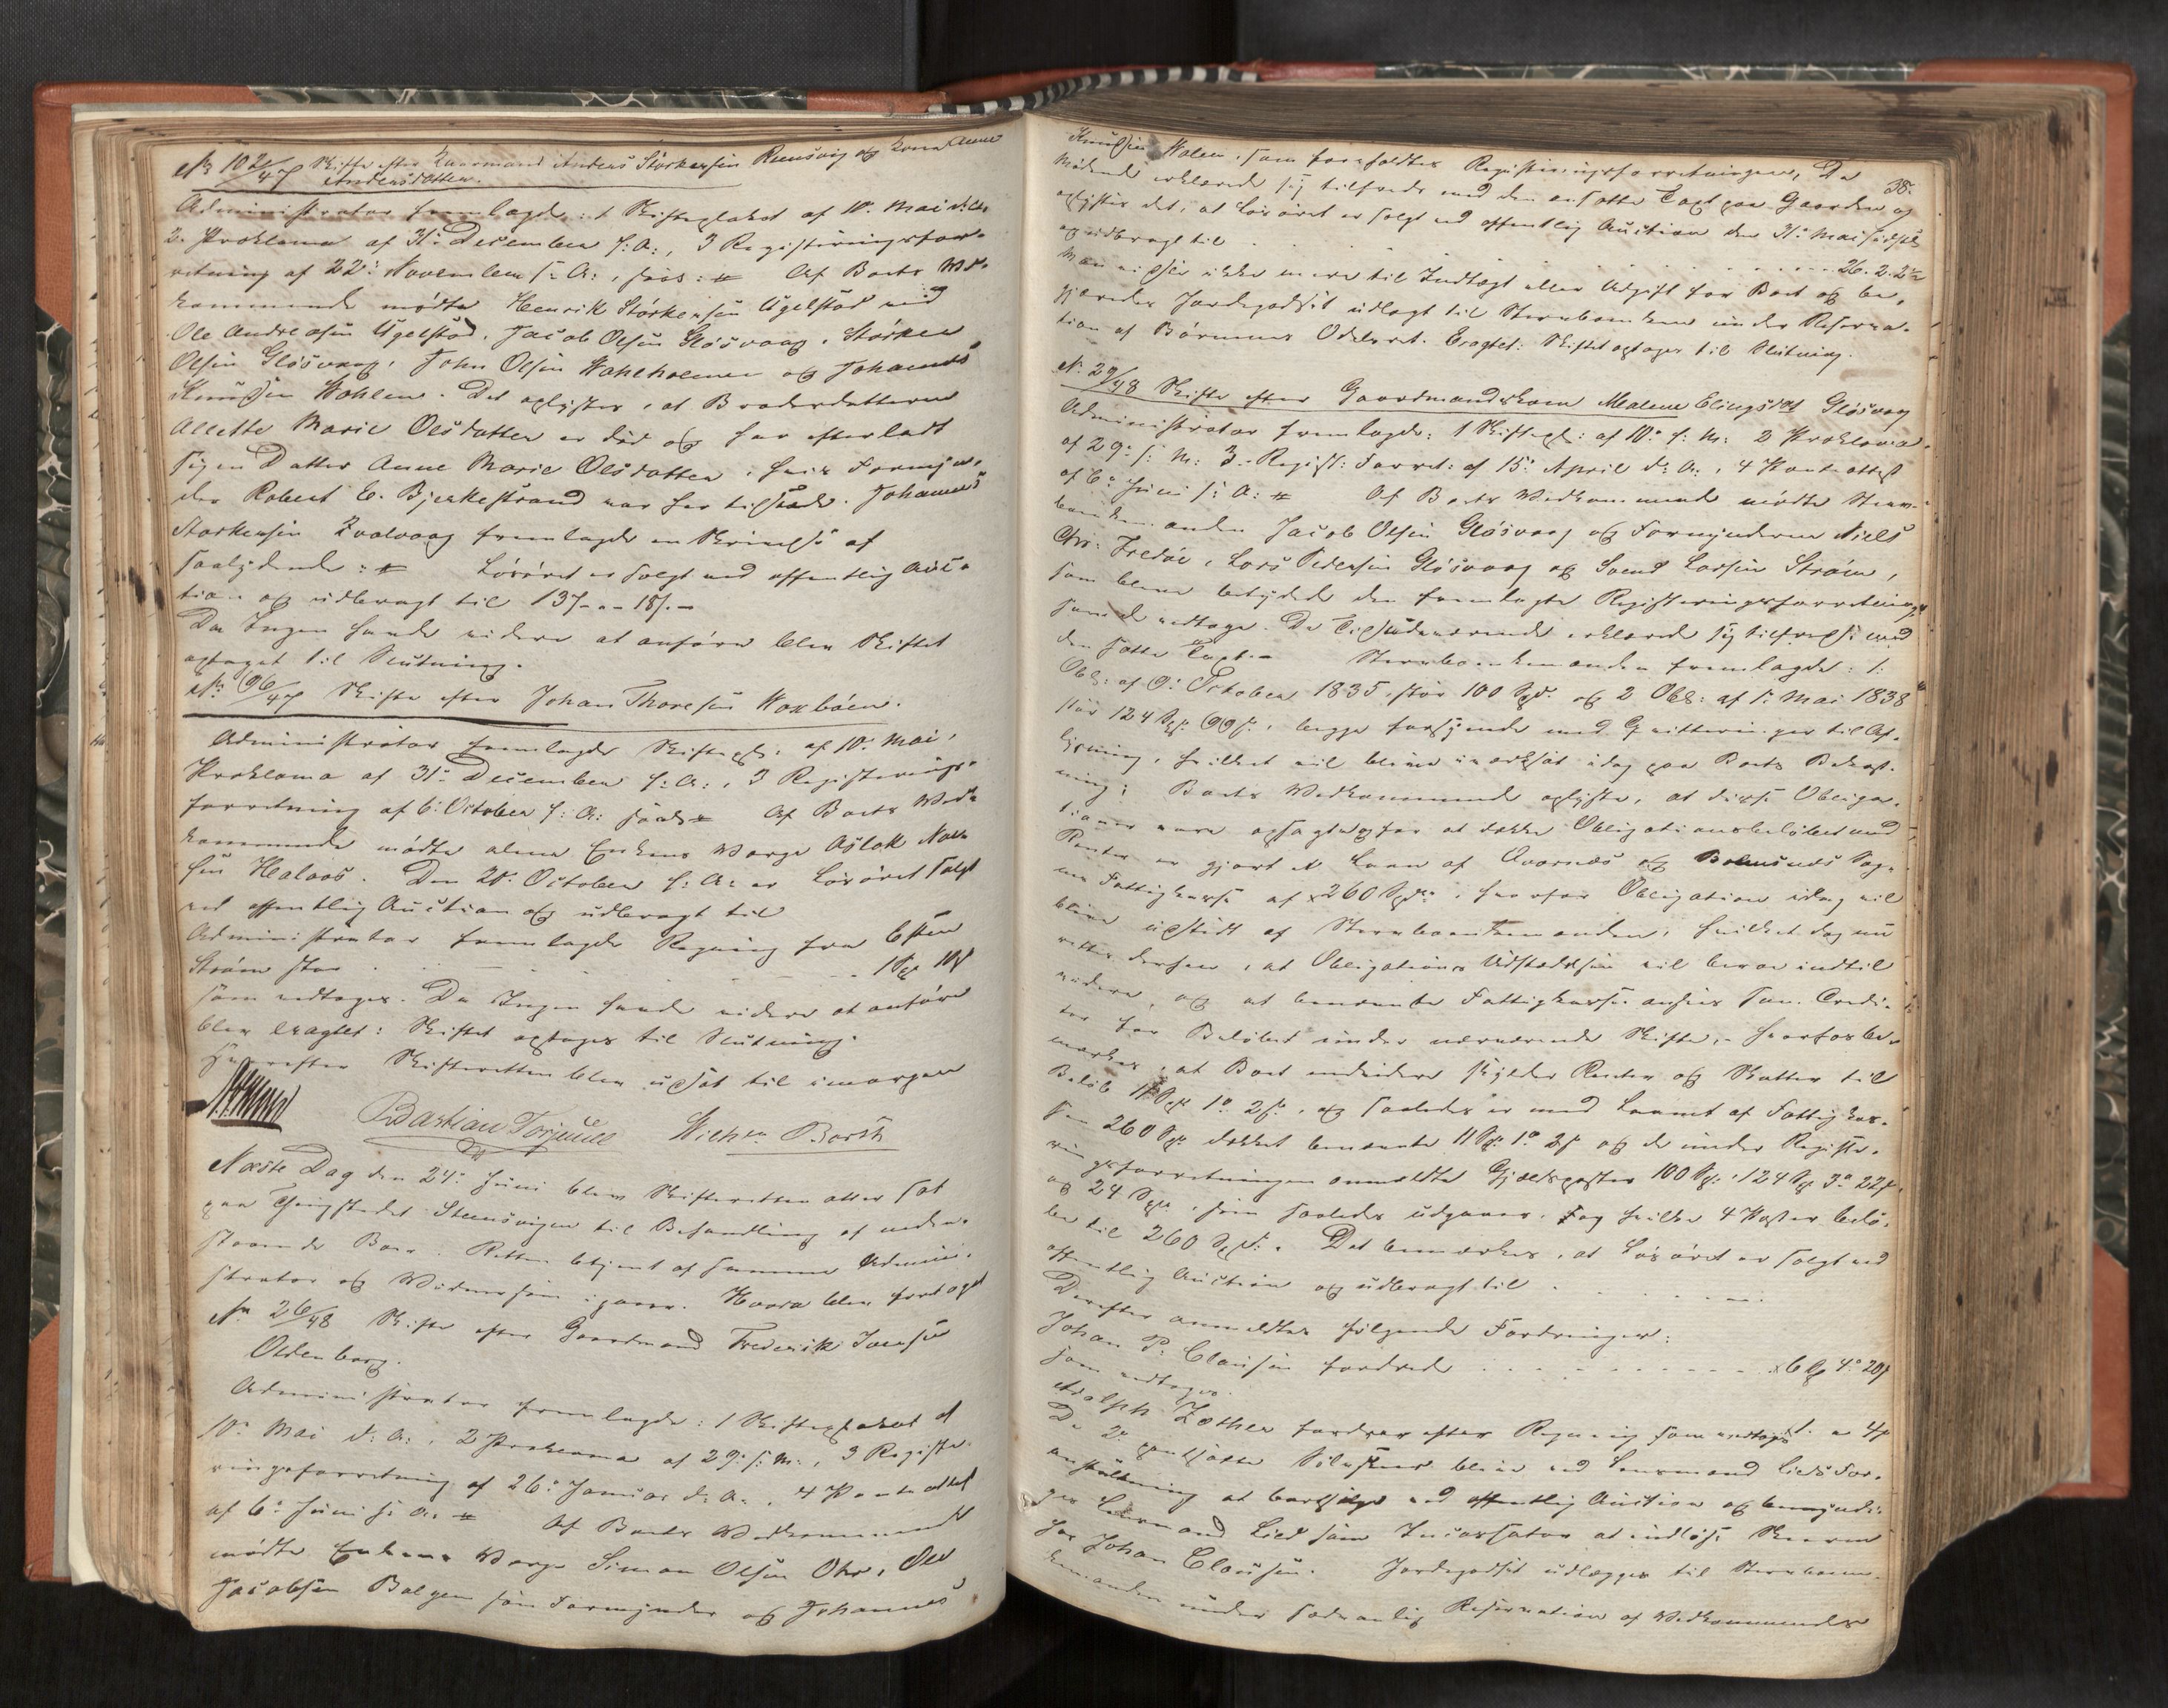 No 102/47 Skifte efter Kaarmand Anders Størkersen Reensvig og Kone Anne
Andersdatter.
Administrator fremlagde: 1 Skifteplakat af 10de Mai d: A:
2 Proklama af 31te December f: A:, 3 Registreringsfor-
retning af 22de November f: A:, saal: # Af Boets Ved-
kommende mødte Henrik Størkersen Ugelstad ved
Ole Andreasen Ugelstad, Jacob Olsen Gløsvaag, Størker
Olsen Gløsvaag, John Olsen Wahlholmen og Johannes
Knudsen Wohlen. Det oplystes, at Broderdatteren
Allette Marie Olsdatter er død og har efterladt
sig en Datter Anne Marie Olsdatter, hvis Formyn-
der Robert E. Bjerkestrand var her tilstæde. Johannes
Størkersen Kvalvaag fremlagde en Skrivelse af
saalydende: # Løsøret er solgt ved offentlig Auc-
tion og udbragt til 137 - " - 18 s. -
Da Ingen havde videre at anføre blev Skiftet
optaget til Slutning.
No 96/47 Skifte efter Johan Thoresen Waxbøen.
Administrator fremlagde Skiftepl: af 10de Mai,
Proklama af 31te December f: A:, 3 Registrerings-
forretning af 6te October f: A: saal: # Af Boets Ved-
kommende mødte alene Enkens Værge Aslak
Halaas. Den 28de October f: A: er Løsøret solgt
ved offentlig Auction og udbragt til
Administrator fremlagde Regning fra
Strøm stor . . . 1 Spd
som vedtoges. Da Ingen havde videre at anføre
blev Eragtet: Skiftet optages til Slutning.
Hvorefter Skifteretten blev udsat til imorgen
Bastian Torjusen
Næste Dag den 24de Juni blev Skifteretten atter sat
paa Thingstedet Steensvigen til Behandling af neden-
staaende Boer. Retten betjent af samme Admini-
strator og Vidner som igaar. Hvorda blev foretaget
No 26/48 Skifte efter Gaardmand Frederik Iversen
Oldenborg.
Administrator fremlagde: 1 Skifteplakat af
10de Mai d: A:, 2 Proklama af 29de s: M:, 3 Registre-
ringsforretning af 26de Januar d: A:, 4 Panteattest
af 6te Juni s: A: # Af Boets Vedkommende
mødte Enkens Værge Simon Olsen Ohr, Ole
Jacobsen Bolgen som Formynder og Johannes
38.
Knudsen Wolen, som foreholdtes Registreringsforretningen. De
Mødende erklærede sig tilfreds med den ansatte Taxt paa Gaarden og
oplystes det, at Løsøret er solgt ved offentlig Auction den 31te Mai sidstl:
og udbragt til . . . 26. 2. 2
Man vidste ikke mere til Indtægt eller Udgift for Boet og be-
gjæredes Jordegodset udlagt til Sterboenken under Reserva-
tion af Børnenes Odelsret. Eragtet: Skiftet optages til Slutning.
No 29/48 Skifte efter Gaardmandskone Malene Ellingsdt Gløsvaag
Administrator fremlagde: 1 Skiftepl: af 10de f: M: 2 Proklama
af 29de s: M: 3 Registr: Forret: af 15de April d: A:, 4 Panteattest
af 6te Juni s: A: # Af Boets Vedkommende mødte Sterv-
boenkemanden Jacob Olsen Gløsvaag og Formynderne Niels
Chr: Fredøe, Lars Pedersen Gløsvaag og Svend Larsen Strøm,
som bleve betydede den fremlagte Registreringsforretning,
som de vedtoge. De Tilstædeværende erklærede sig tilfredse med
den satte Taxt. - Stervboenkemanden fremlagde: 1:
Obl: af 9de October 1835, stor 100 Spd. og 2 Obl: af 1ste Mai 1838
stor 124 Spd. 99 s., begge forsynede med Qvitteringer til Af-
lysning, hvilket vil blive iværksat idag paa Boets Bekost-
ning: Boets Vedkommende oplyste, at disse Obliga-
tioner vare opsagte og for at dække Obligationsbeløbet med
Renter er gjort et Laan af Qvernæs og Bremsnæs Sog-
nes Fattigkasse af 260 Spd., hvorfor Obligation idag vil
blive udstædt af Stervboenkemanden, hvilket dog nu
rettes derhen, at Obligations Udstædelsen vil bero indtil
videre, og at benævnte Fattigkasse ansees som Credi-
tor for Beløbet under nærværende Skifte, - hvorfor be-
mærkes, at Boet endvidere skylder Renter og Skatter til
Beløb 11 Spd. 1 o 2 s., og saaledes er med Laanet af Fattigkas-
sen 260 Spd. dækket benævnte 11 Spd. 1 o 2 s og de under Registre-
ringsforretningen anmeldte Gjældsposter 100 Spd., 124 Spd. 3 o 22 s.
og 24 Spd., som saaledes udgaaer, og hvilke 4 Poster belø-
ber til 260 Spd. Det bemærkes, at Løsøret er solgt ved
offentlig Auction og udbragt til . . .
Derefter anmeldtes følgende Fordringer:
Johan P. Clausen fordrede . . . 6 Spd 4 o 20 s
som vedtoges.
Adolph Zother fordrer efter Regning som vedtoges 1. " 4 s
De 2de pantsatte Sølvskeer blive ved Lensmand Lieds For-
anstaltning at bortsælge ved offentlig Auction og bemyndi-
ges Lensmand Lied som Incassator at indløse Skeerne
hos Johan Clausen. Jordegodset udlægges til Stervboen-
kemanden under sædvanlig Reservation af Vedkommendes